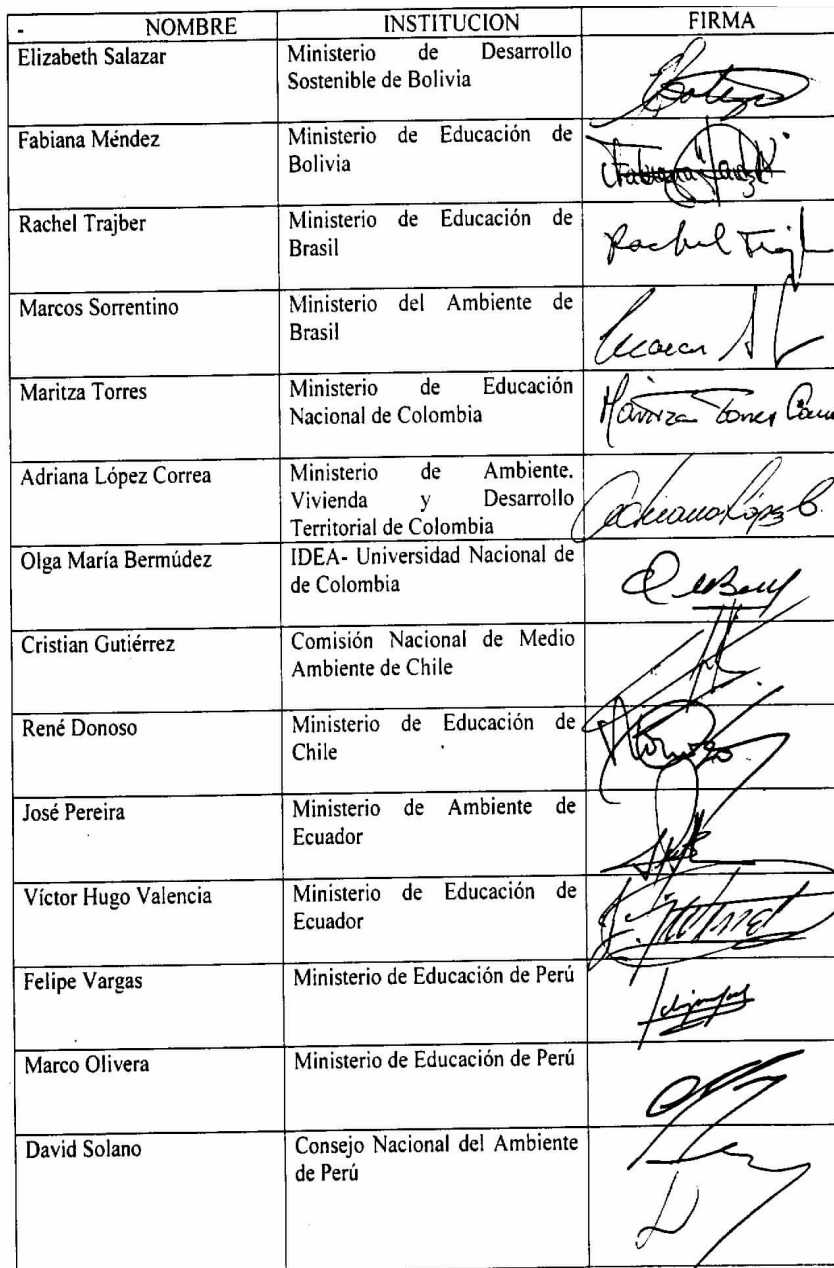 - NOMBRE INSTITUCION FIRMA
Elizabeth Salazar Ministerio de Desarrollo
Sostenible de Bolivia
Fabiana Méndez Ministerio de Educación de
Bolivia
Rachel Trajber Ministerio de Educación de
Brasil
Rachel
Marcos Sorrentino Ministerio del Ambiente de
Brasil
Maritza Torres Ministerio de Educación
Nacional de Colombia
Maritza Torres
Adriana López Correa Ministerio de Ambiente.
Vivienda y Desarrollo
Territorial de Colombia
Adriana López C.
Olga María Bermúdez IDEA- Universidad Nacional de
de Colombia
Cristian Gutiérrez Comisión Nacional de Medio
Ambiente de Chile
René Donoso Ministerio de Educación de
Chile
José Pereira Ministerio de Ambiente de
Ecuador
Víctor Hugo Valencia Ministerio de Educación de
Ecuador
Felipe Vargas Ministerio de Educación de Perú
Marco Olivera Ministerio de Educación de Perú
David Solano Consejo Nacional del Ambiente
de Perú